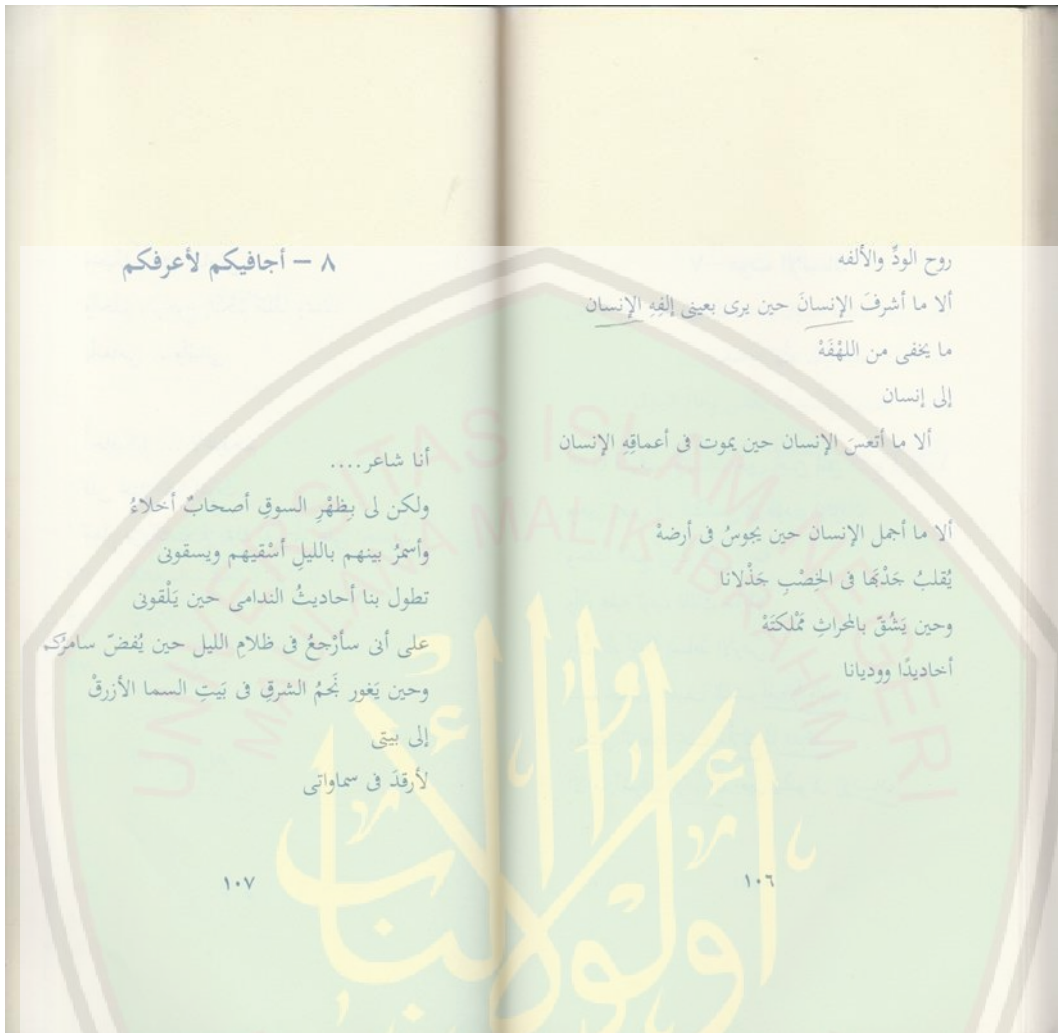 روح الودِّ والألفه
ألا ما أشرفَ الإنسانَ حين يرى بعينى إلفِهِ الإنسان
ما يخفى من اللهْفَهْ
إلى إنسان
ألا ما أتعسَ الإنسان حين يموت فى أعماقِهِ الإنسان
ألا ما أجمل الإنسان حين يجوسُ فى أرضهْ
يُقلبُ جَدْبَها فى الخِصْبِ جَذْلانا
وحين يَشُقّ بالمحراثِ مَمْلكتَهْ
أخاديدًا ووديانا
١٠٦
٨ – أجافيكم لأعرفكم
أنا شاعر....
ولكن لى بِظهْرِ السوقِ أصحابٌ أخلاءُ
وأسمرُ بينهم بالليلِ أسْقيهم ويسقونى
تطول بنا أحاديثُ الندامى حين يَلْقونى
على أنى سأرْجعُ فى ظلامِ الليل حين يُفضّ سامرُكم
وحين يَغور نَجمُ الشرقِ فى بَيتِ السما الأزرقْ
إلى بيتى
لأرقدَ فى سماواتى
١٠٧
UNIVERSITAS ISLAM NEGERI
MAULANA MALIK IBRAHIM